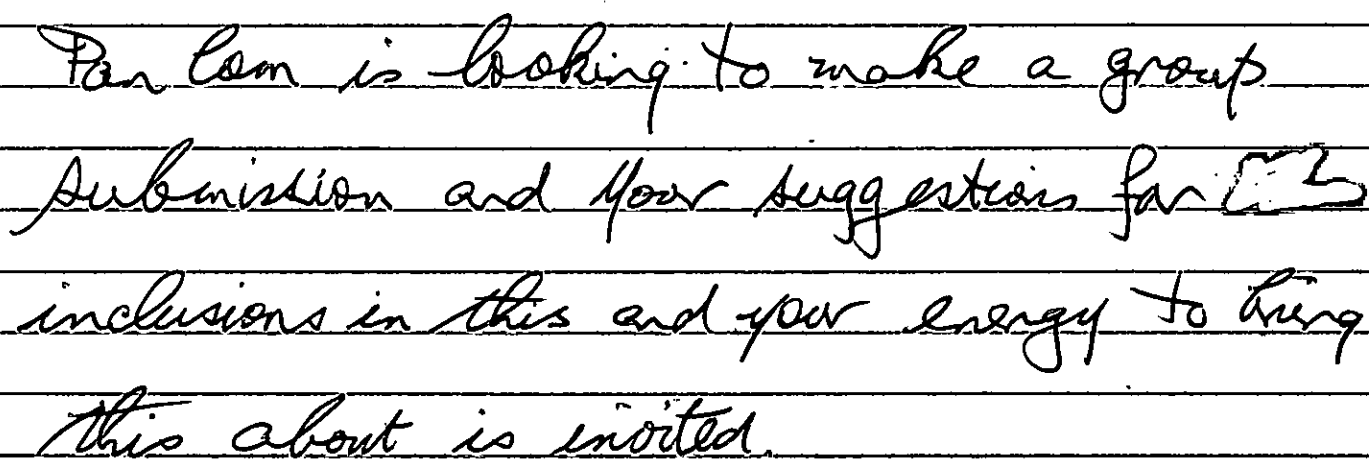 Pan Com is looking to make a group
submission and your suggestions for
inclusions in this and your energy to bring
this about is invited.